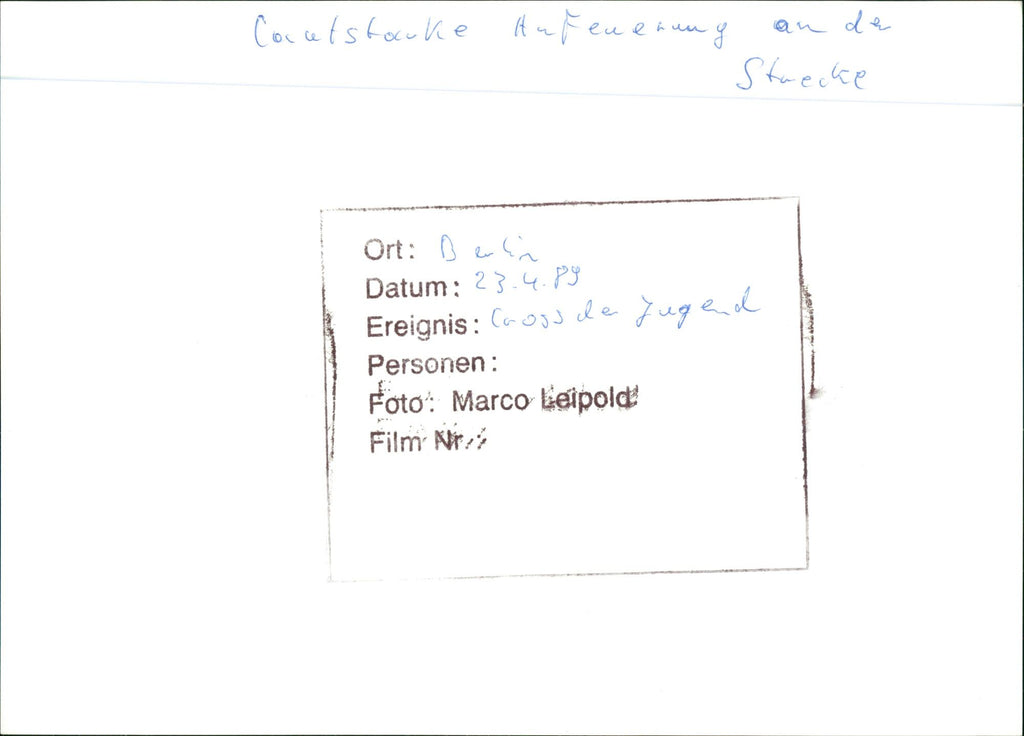 Lautstarke Anfeuerung an der
Strecke
Ort: Berlin
Datum: 23.4.89
Ereignis: Cross der Jugend
Personen:
Foto: Marco Leipold
Film Nr.: